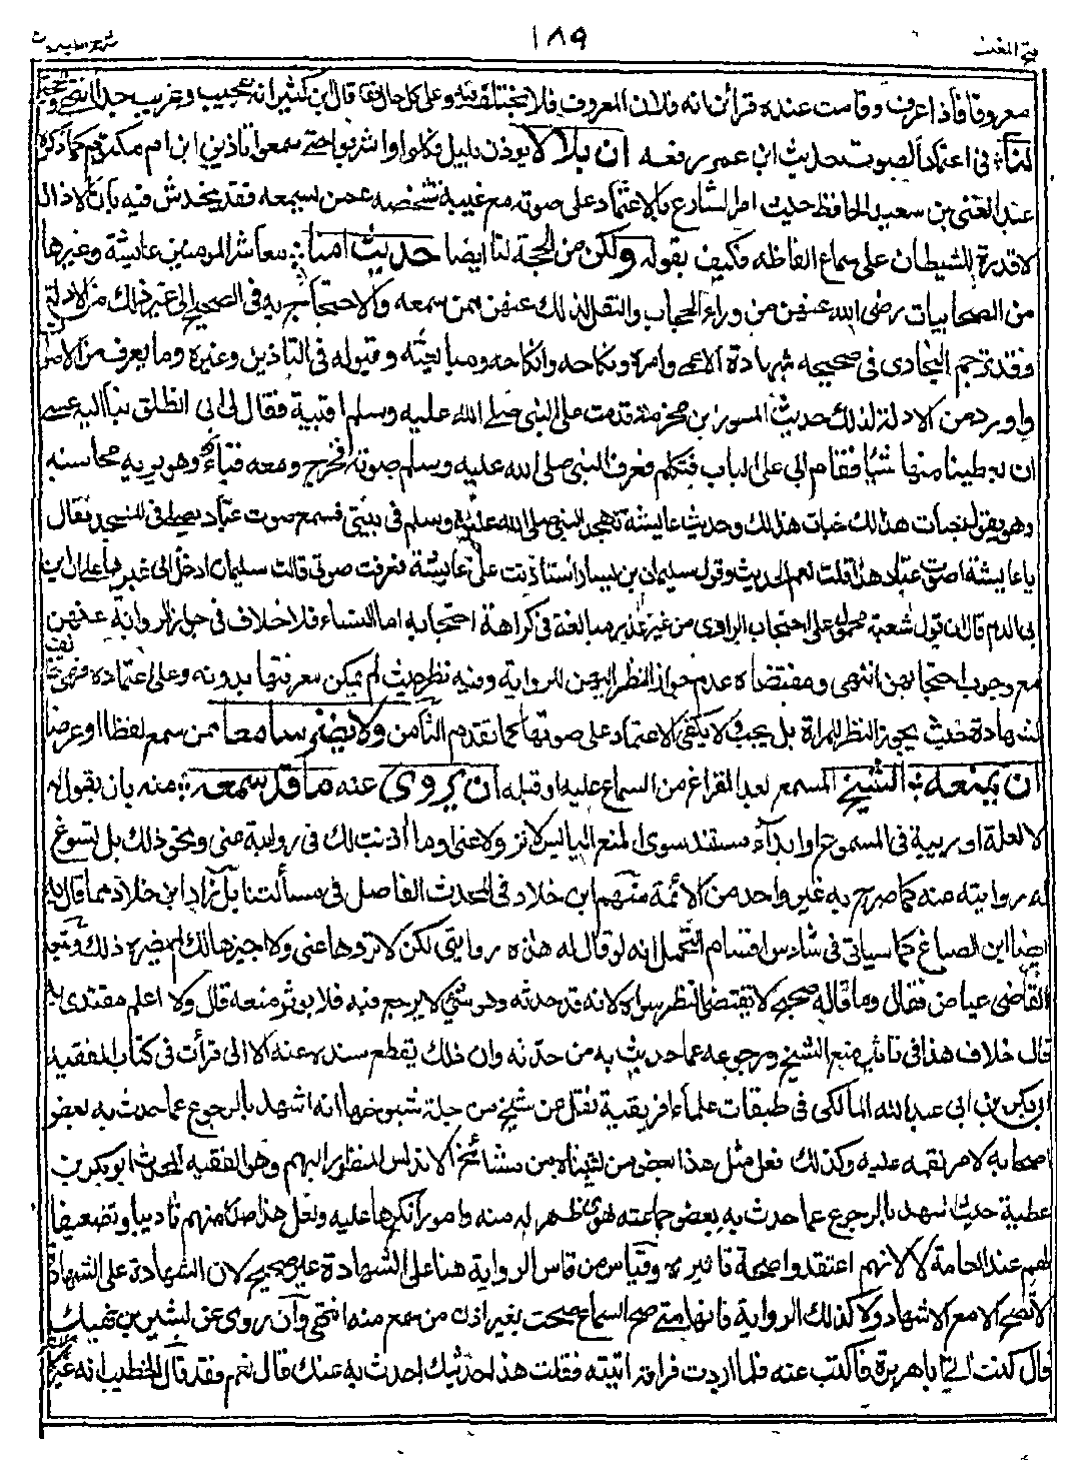 ١٨٩
معروفا فاذا عرف وقامت عنده قرائن انه فلان المعروف فلا يختلف فيه وعلى كل حال فقد قال ابن كثير انه عجيب وغريب جدا انتهى والحجة
لنا في اعتماد الصوت حديث ابن عمر رفعه ان بلالا يوذن بليل فكلوا واشربوا حتى تسمعوا تاذين ابن ام مكتوم كما ذكره
عبد الغنى بن سعيد الحافظ حيث امر الشارع بالاعتماد على صوته مع غيبة شخصه عمن يسمعه فقد يخدش فيه بان الاذان
لا قدرة للشيطان على سماع الفاظه فكيف بقوله ولكن من الحجة لنا ايضا حديث امنا معاشر المومنين عايشة وغيرها
من الصحابيات رضى الله عنهن من وراء الحجاب والنقل لذلك عنهن ممن سمعه والاحتجاج به في الصحيح الى غير ذلك من الادلة
فقد ترجم البخارى فى صحيحه شهادة الاعمى وامره ونكاحه وانكاحه ومبايعته وقبوله فى التاذين وغيره وما يعرف من الاصوات
واورد من الادلة لذلك حديث المسور بن مخرمة قدمت على النبى صلى الله عليه وسلم اقبية فقال لى ابى انطلق بنا اليه عسى
ان يعطينا منها شيا فقام ابى على الباب فتكلم فعرف النبى صلى الله عليه وسلم صوته فخرج ومعه قباء وهو يريه محاسنه
وهو يقول خبات هذا لك خبات هذا لك وحديث عايشة تهجد النبى صلى الله عليه وسلم فى بيتى فسمع صوت عباد يصلى فى المسجد فقال
يا عايشة اصوت عباد هذا قلت نعم الحديث وقول سليمان بن يسار استاذنت على عايشة فعرفت صوتى قالت سليمان ادخل الى غيرها على ان ابن
ابى الدم قال ان قول شعبة محمول على احتجاب الراوى من غير عذر مبالغة فى كراهة احتجابه اما النساء فلا خلاف فى جواز الرواية عنهن
مع وجوب احتجابهن انتهى ومقتضاه عدم جواز النظر اليهن للرواية وفيه نظر حيث لم يمكن معرفتها بدونه وعلى اعتماده
الشهادة حيث يجوز النظر للمراة بل يجب ولا يكفى الاعتماد على صوتها كما تقدم الثامن ولا يضر سامعا ممن سمع لفظا او عرضا
ان يمنعه الشيخ المسمع بعد الفراغ من السماع عليه او قبله ان يروى عنه ما قد سمعه منه بان يقول له
لا لعلة او ريبة فى المسموع او ابداء مستند سوى المنع اليابس لا ترو ولا عنى وما اذنت لك فى رواية عنى ونحو ذلك بل تسوغ
له روايته عنه كما صرح به غير واحد من الائمة منهم ابن خلاد فى المحدث الفاصل فى مسألتنا بل زاد ابن خلاد مما قال به
ايضا ابن الصباغ كما سياتى فى سادس اقسام التحمل انه لو قال له هذه روايتى لكن لا تروها عنى ولا اجيزها لك لم يضره ذلك وتبعه
القاضى عياض فقال وما قاله صحيح لا يقتضى النظر سواه لانه قد حدثه وهو شئ لا يرجع فيه فلا يوثر منعه قال ولا اعلم مقتدى به
قال خلاف هذا فى تاثير منع الشيخ ورجوعه عما حدث به من حدثه وان ذلك يقطع سنده عنه الا الى قرأت فى كتاب الفقيه
ابى بكر بن ابى عبد الله المالكى فى طبقات علماء افريقية نقل عن شيخ من جلة شيوخها انه اشهد بالرجوع عما حدث به بعض
اصحابه لامر نقمه عليه وكذلك فعل مثل هذا بعض من لقيناه من مشائخ الاندلس المنظور اليهم وهو الفقيه المحدث ابو بكر بن
عطية حيث شهد بالرجوع عما حدث به بعض جماعته لهوى ظهر له منه وامور انكرها عليه ولعل هذا صدر منهم تاديبا وتضعيفا
لهم عند العامة لا لانهم اعتقدوا صحة تاثيره وقياس من قاس الرواية هنا على الشهادة غير صحيح لان الشهادة على الشهادة
لا تصح الا مع الاشهاد ولا كذلك الرواية فانها متى صح السماع صحت بغير اذن من سمع منه انتهى وان روى عن بشير بن نهيك
قال كنت اتى ابا هريرة فاكتب عنه فلما اردت فراقه اتيته فقلت هذا حديثك احدث به عنك قال نعم فقد قال الخطيب انه